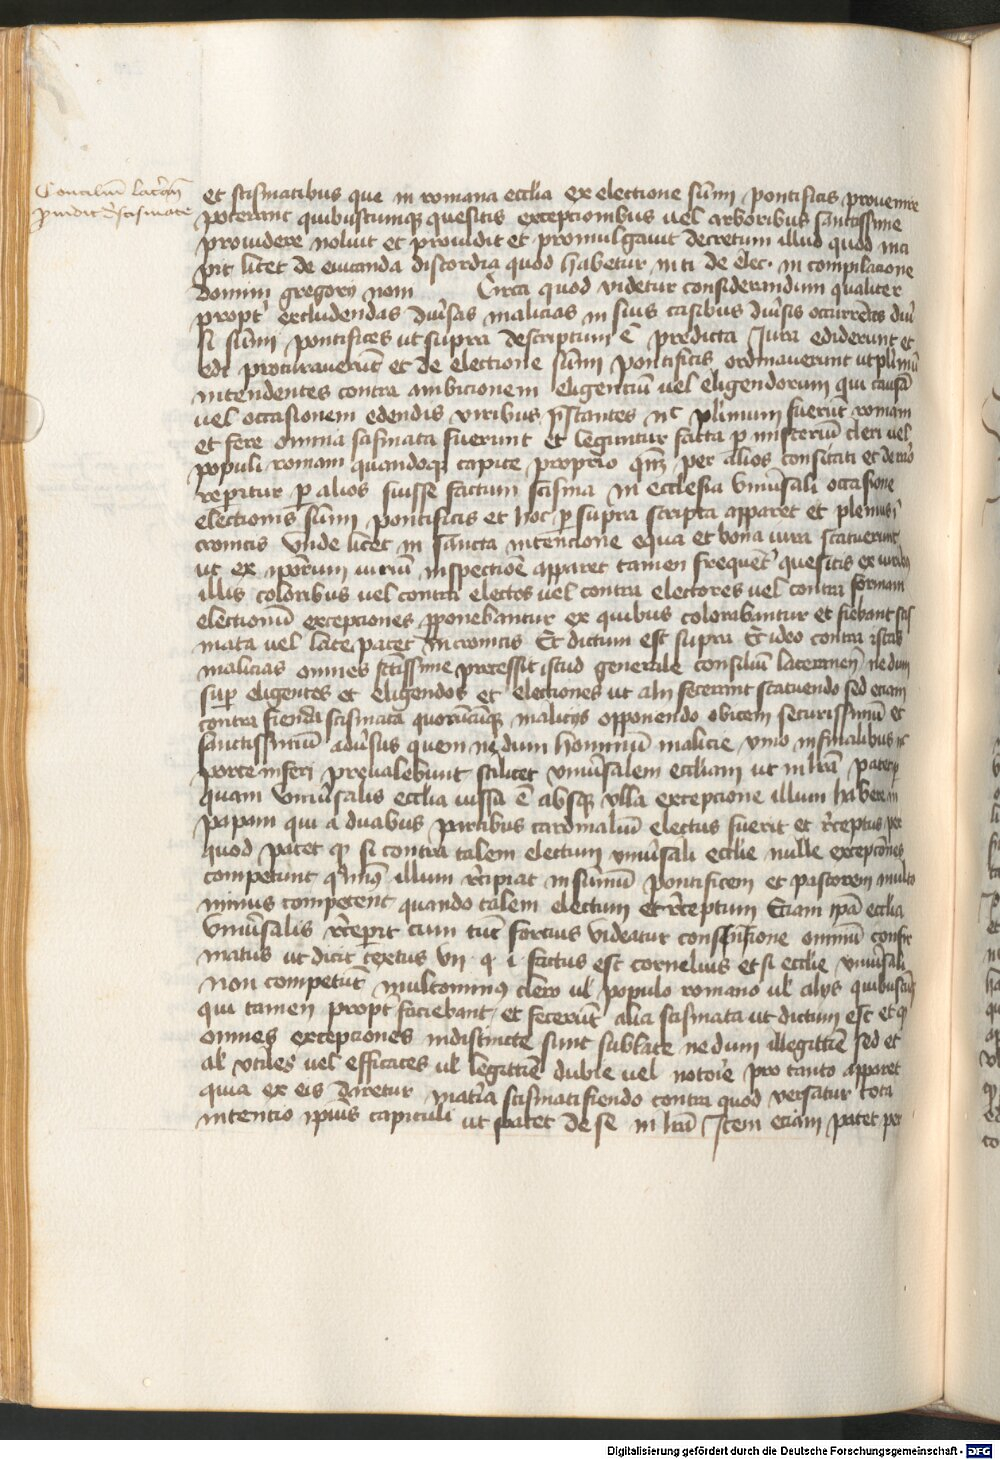 Conciliũ lat'añ
p̱uidit d'scismate
et scismatibus que in romana ecclia ex electione sũmi pontificis prouenire
poterant quibuscumq; quesitis exceptionibus uel arboribus sanctissime
prouidere uoluit et prouidit et promulgauit decretum illud quod inci
pit licet de euitanda discordia quod habetur in ti de elec. in compilacione
domini gregorij noni Circa quod videtur considerandum qualiter
propt' excludendas diũsas malicias in suis casibus diũsis occurrẽtes
sũmi pontifices ut supra descriptum ẽ predicta Jura ediderunt et
edi procurauerũt et de electione sũmi pontificis ordinauerunt ut plimũ
intendentes contra ambicionem eligenciũ uel eligendorum qui causã
uel occasionem edendis viribus p̃stantes plimum fuerũt romani
et fere omnia scismata fuerunt et leguntur facta p misteriũ cleri uel
populi romani quandoq; capite proprio per alios concitati et
repitur p alios fuisse factum scisma in ecclesia vniũsali occasione
electionis sũmi pontificis et hoc p supra scripta apparet et plenius ĩ
cronicis vnde licet in sancta intencione equa et bona iura statuerunt
ut ex ip̃orum iuriũ inspectiõe apparet tamen frequẽt' quesitis ex
illis coloribus uel contra electos uel contra electores uel contra formam
electionũ exceptiones p̱ponebantur ex quibus colorabantur et fiebant scis
mata uel late patet in cronicis Et dictum est supra Et ideo contra istas
malicias omnes sctissime processit istud generale consiliũ lateranen̄ nedum
sup eligentes et eligendos et electiones ut alij fecerunt statuendo sed eciam
contra fienda scismata quorũcũq; malicijs opponendo obicem securissimũ et
sanctissimũ adũsus quem nedum hominũ malicie ymo infernalibus
porte inferi preualebunt scilicet vniũsalem eccliam ut in lr̃a patet
quam vniũsalis ecclia iussa ẽ absq; vlla exceptione illum habere in
papam qui a duabus partibus cardinaliũ electus fuerit et r̃ceptus per
quod patet q̱ si contra talem electum vniũsali ecclie nulle exceptiões
competunt q̃min9 illum r̃cipiat in sũmũ pontificem et pastorem multo
minus competent quando talem electum et r̃ceptum Eciam ip̃a ecclia
vniũsalis r̃ceperit cum tũc forcius videatur consensione omniũ confir
matus ut dicit textus vij q i factus est cornelius et si ecclie vniũsali
non competũt multominus clero ul' populo romano ul' alijs quibuscũq;
qui tamen propt' faciebant et fecerũt alia scismata ut dictum est et q̱
omnes exceptiones indistincte sunt sublate nedum illegittie sed et
al' vtiles uel efficaces ul' legittie dubie uel notorie pro tanto apparet
quia ex eis daretur mat'ia scismati fiendo contra quod versatur tota
intentio ip̃ius capituli ut patet de se in lr̃a Jtem eciam patet per
Digitalisierung gefördert durch die Deutsche Forschungsgemeinschaft - DFG